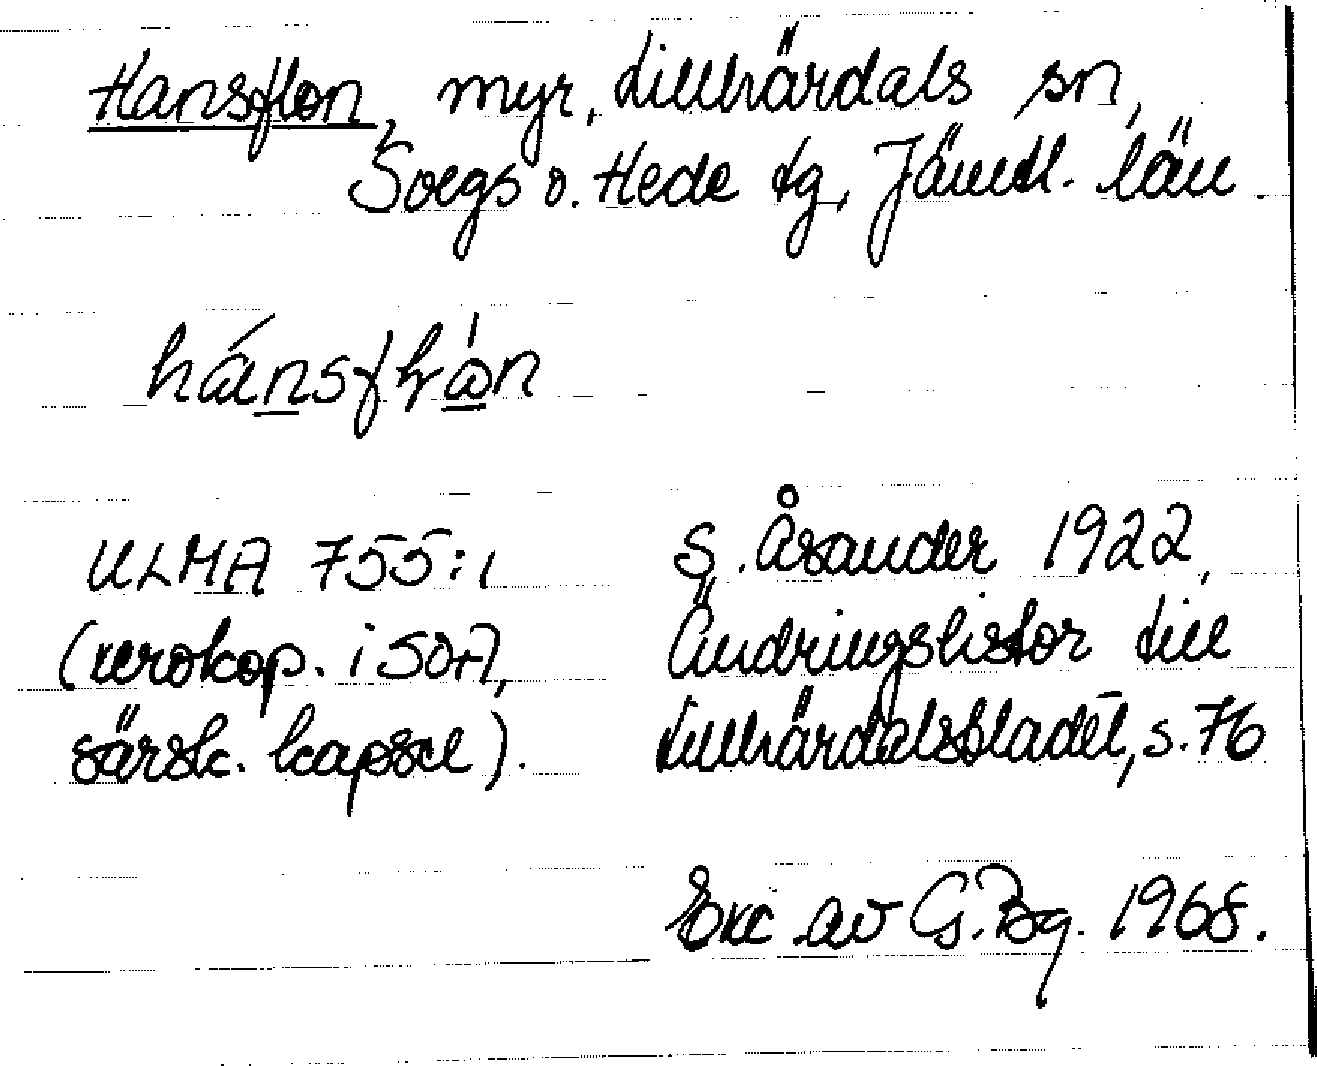 Hansflon, myr, Lillhärdals sn,
Svegs o. Hede tg, Jämtl. län.
ULMA 755:1
(xerokop. i SOA,
särsk. kapsel).
S. Åsander 1922,
Ändringslistor till
Lillhärdalsbladet, s. 76
Exc av G. Bg. 1968.